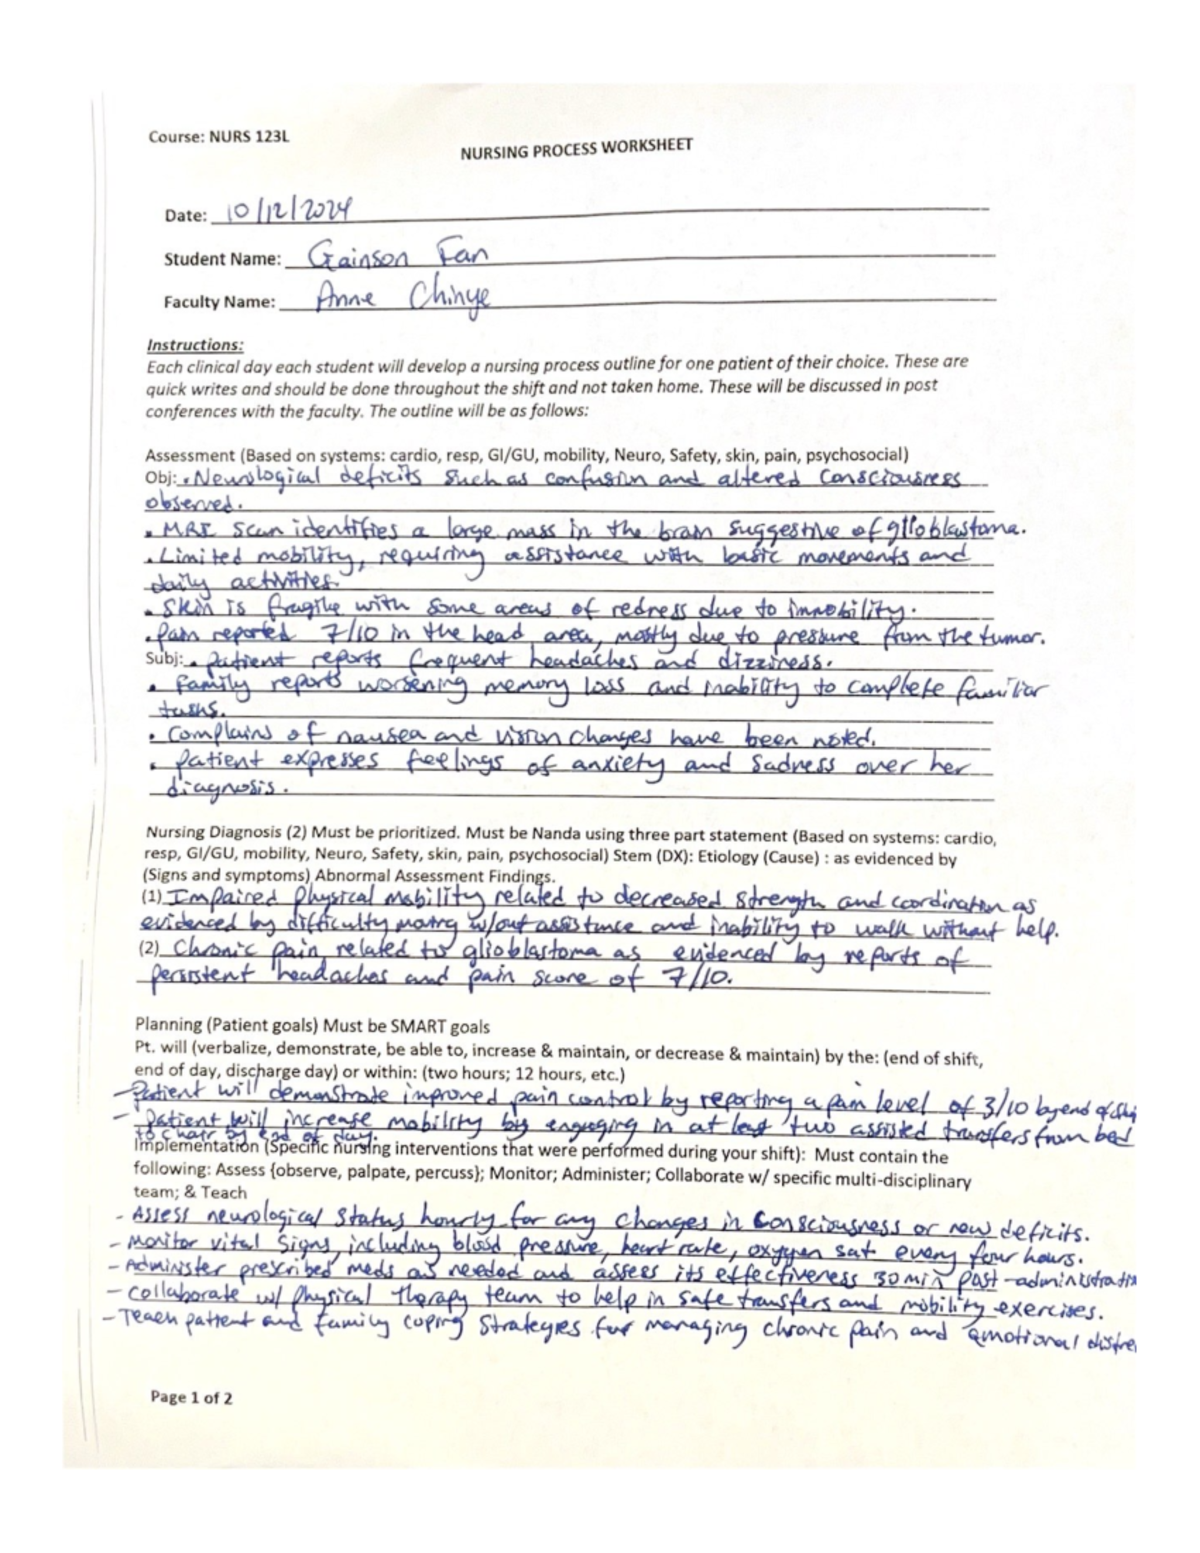 Course: NURS 123L
NURSING PROCESS WORKSHEET
Date: 10/12/2024
Student Name: Gainson Fan
Faculty Name: Anne Chinye
Instructions:
Each clinical day each student will develop a nursing process outline for one patient of their choice. These are
quick writes and should be done throughout the shift and not taken home. These will be discussed in post
conferences with the faculty. The outline will be as follows:
Assessment (Based on systems: cardio, resp, GI/GU, mobility, Neuro, Safety, skin, pain, psychosocial)
Obj: • Neurological deficits such as confusion and altered consciousness
observed.
• MRI scan identifies a large mass in the brain suggestive of glioblastoma.
• Limited mobility, requiring assistance with basic movements and
daily activities.
• Skin is fragile with some areas of redness due to immobility.
• Pain reported 7/10 in the head area, mostly due to pressure from the tumor.
Subj: • Patient reports frequent headaches and dizziness.
• Family reports worsening memory loss and inability to complete familiar
tasks.
• Complains of nausea and vision changes have been noted.
• Patient expresses feelings of anxiety and sadness over her
diagnosis.
Nursing Diagnosis (2) Must be prioritized. Must be Nanda using three part statement (Based on systems: cardio,
resp, GI/GU, mobility, Neuro, Safety, skin, pain, psychosocial) Stem (DX): Etiology (Cause) : as evidenced by
(Signs and symptoms) Abnormal Assessment Findings.
(1) Impaired Physical Mobility related to decreased strength and coordination as
evidenced by difficulty moving w/out assistance and inability to walk without help.
(2) Chronic pain related to glioblastoma as evidenced by reports of
persistent headaches and pain score of 7/10.
Planning (Patient goals) Must be SMART goals
Pt. will (verbalize, demonstrate, be able to, increase & maintain, or decrease & maintain) by the: (end of shift,
end of day, discharge day) or within: (two hours; 12 hours, etc.)
- Patient will demonstrate improved pain control by reporting a pain level of 3/10 by end of shi
- Patient will increase mobility by engaging in at least two assisted transfers from bed
to chair by end of day.
Implementation (Specific nursing interventions that were performed during your shift): Must contain the
following: Assess {observe, palpate, percuss}; Monitor; Administer; Collaborate w/ specific multi-disciplinary
team; & Teach
- Assess neurological status hourly for any changes in consciousness or new deficits.
- Monitor vital signs, including blood pressure, heart rate, oxygen sat every four hours.
- Administer prescribed meds as needed and assess its effectiveness 30 min post-administratio
- Collaborate w/ physical therapy team to help in safe transfers and mobility exercises.
- Teach patient and family coping strategies for managing chronic pain and emotional distre
Page 1 of 2